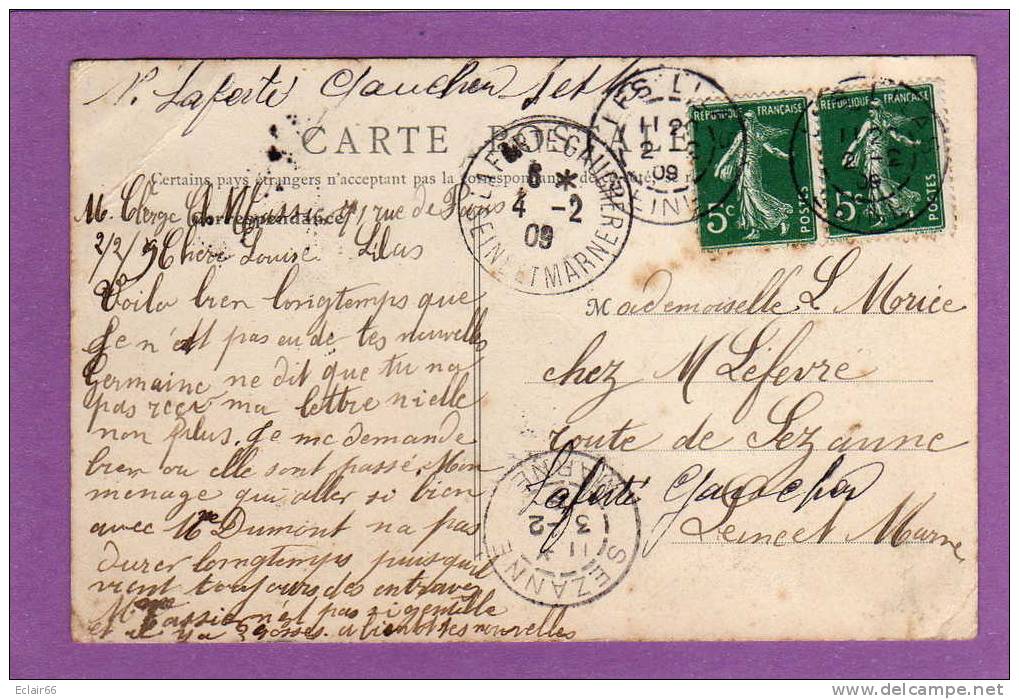 P. Laferté Gaucher S et M
CARTE POSTALE
Certains pays étrangers n'acceptant pas la correspondance
Correspondance
M. Clerge Ch. M. 71 rue de Paris
2/2/9 Chère Louise Lilas
Voila bien longtemps que
Je n'ét pas eu de tes nouvelles
Germaine ne dit que tu na
pas reçu ma lettre ni elle
non plus. Je me demande
bien ou elle sont passé. Mon
menage qui aller si bien
avec Me Dumont na pas
durer longtemps puisqu'il
vient toujours des entraves
Mme Tassie n'ét pas si gentille
et il y a 3 gosses. a bientot tes nouvelles
Mademoiselle L Morice
chez M Lefevre
route de Sezanne
Laferté Gaucher
Seine et Marne
RÉPUBLIQUE FRANÇAISE
5c
POSTES
RÉPUBLIQUE FRANÇAISE
5c
POSTES
LES LILAS
11
2 - 2
09
SEINE
LA FERTE GAUCHER
6 *
4 -2
09
SEINE ET MARNE
SEZANNE
11 *
3 -2
MARNE
Eclair66
www.delcampe.net